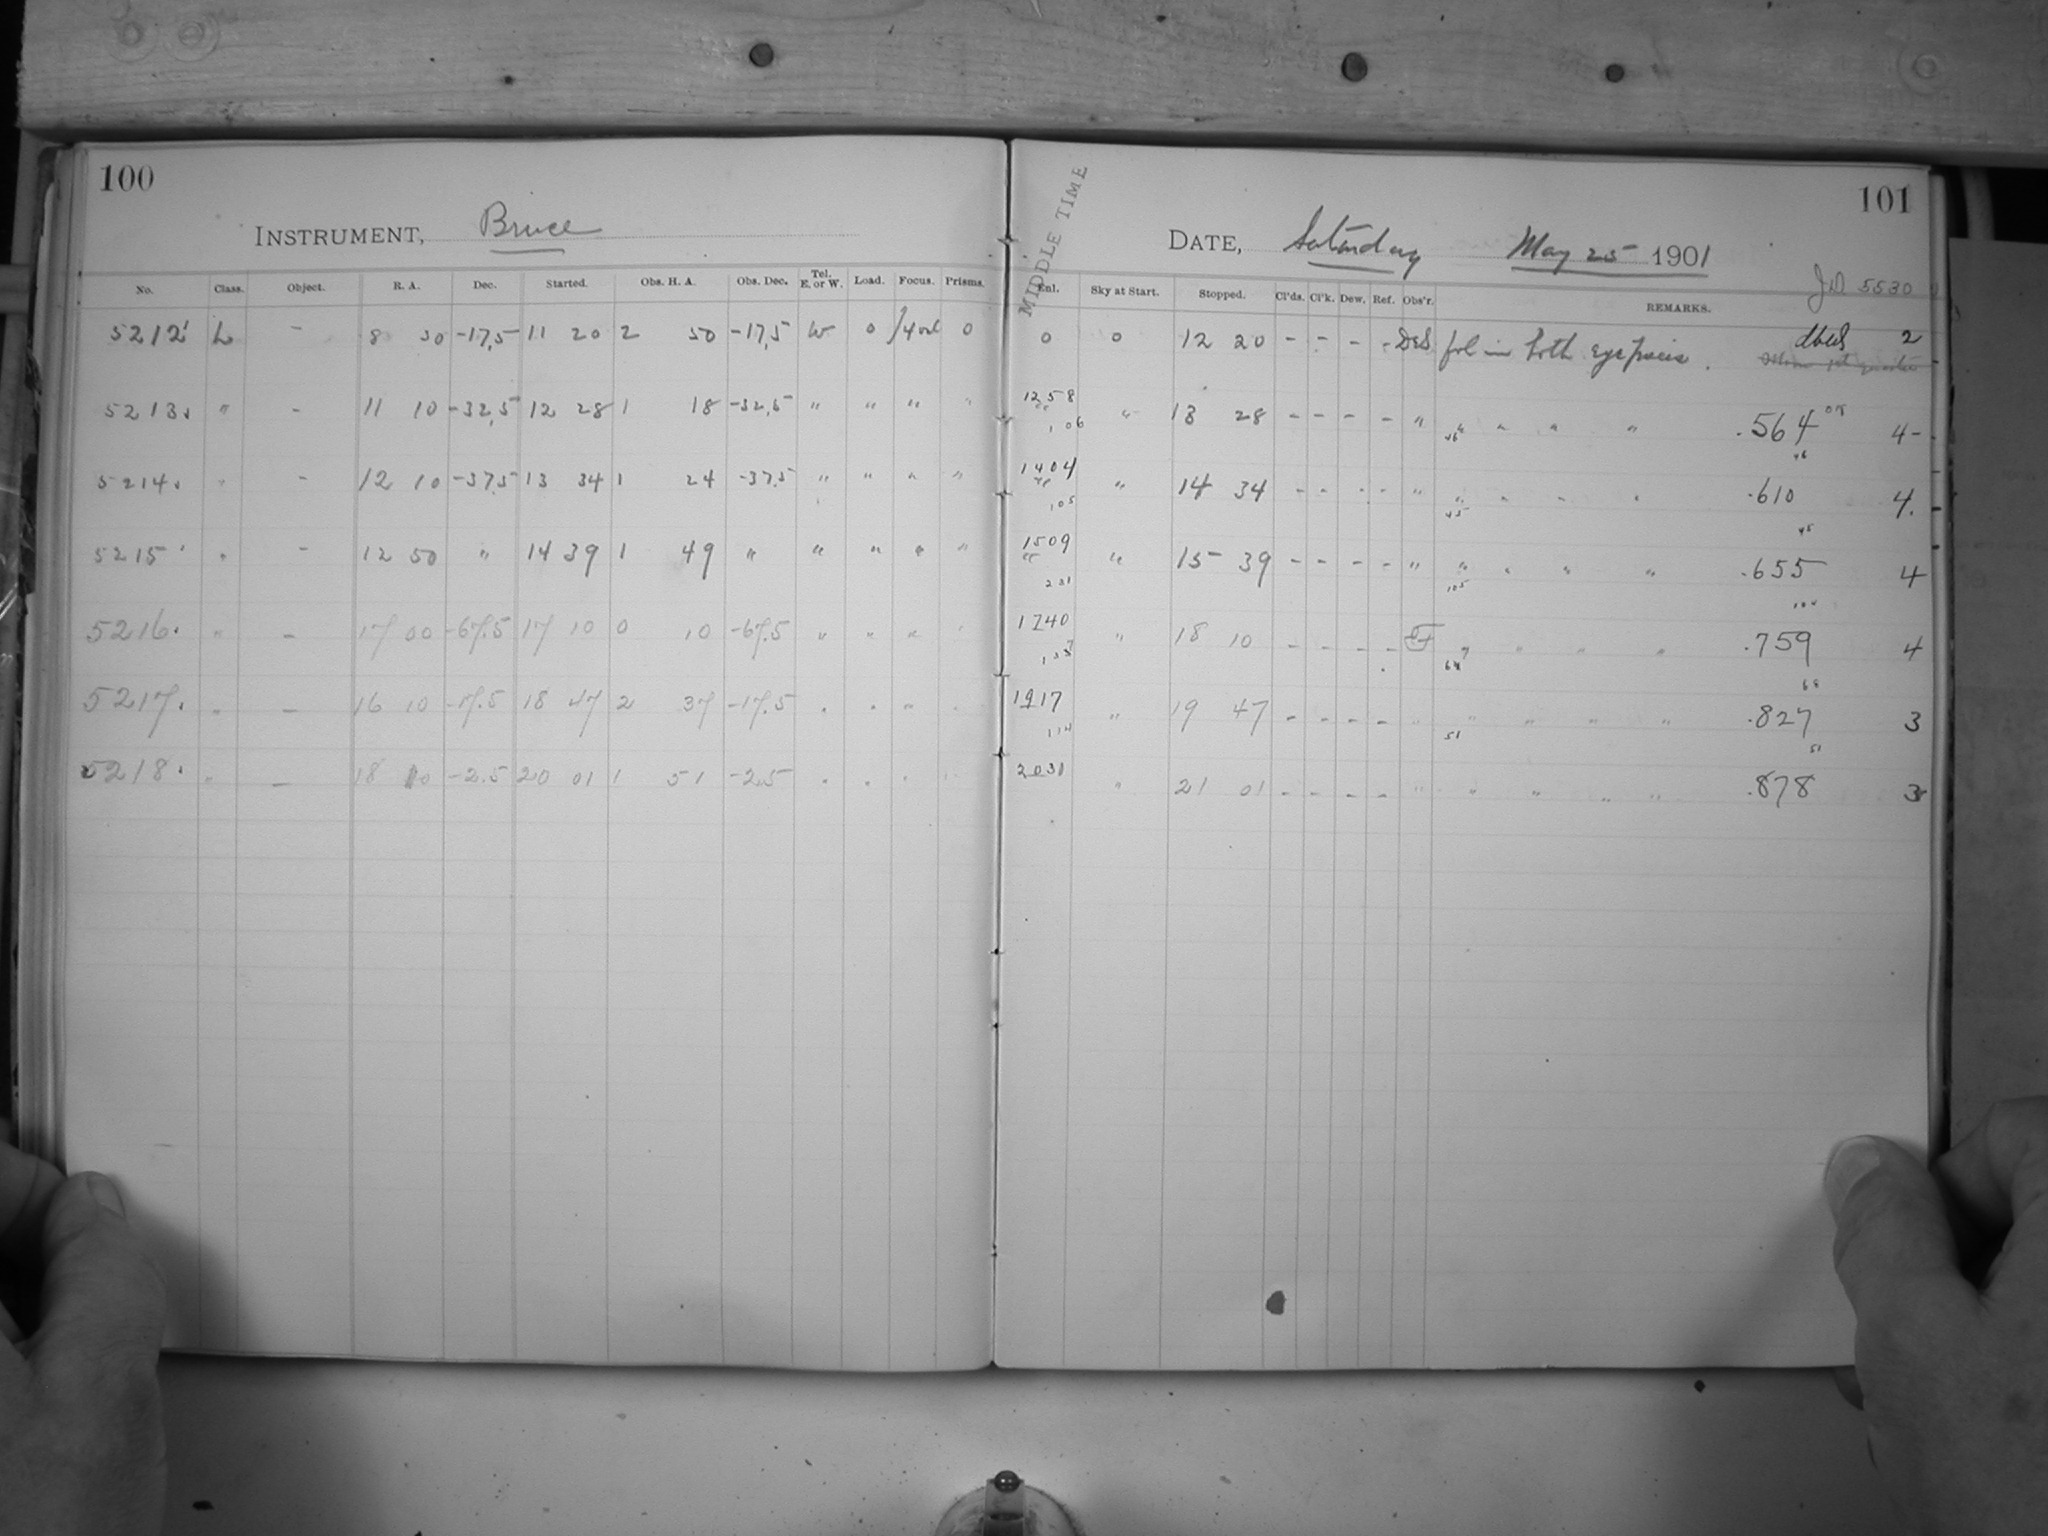 100
INSTRUMENT, Bruce
No. Class. Object. R. A. Dec. Started. Obs. H. A. Obs. Dec. Tel. E. or W. Load. Focus. Prisms.
5212 L - 8 30 -17,5 11 20 2 50 -17,5 W 0 0
5213. " - 11 10 -32,5 12 28 1 18 -32,5 " " " "
5214. " - 12 10 -37,5 13 34 1 24 -37.5 " " " "
5215 " - 12 50 " 14 39 1 49 " " " " "
5216. " - 17 00 -67.5 17 10 0 10 -67.5 " " "
5217. " - 16 10 -17.5 18 47 2 37 -17.5 . . "
5218. " - 18 10 -2.5 20 01 1 51 -2.5 . .
101
MIDDLE TIME
DATE, Saturday May 25 1901
JD 5530
Enl. Sky at Start. Stopped. Cl'ds. Cl'k. Dew. Ref. Obs'r. REMARKS.
0 0 12 20 - - - - DeS fol in both eye pieces. 2
1258 " 13 28 - - - - " " " " " .564 4-
106 46
1404 " 14 34 - - - - " " " " " .610 4.
105 45
1509 " 15 39 - - - - " " " " " .655 4
231 105
1740 " 18 10 - - - - " " " " .759 4
68
1917 " 19 47 - - - - " " " " " .827 3
51
2031 " 21 01 - - - - " " " " " .878 3